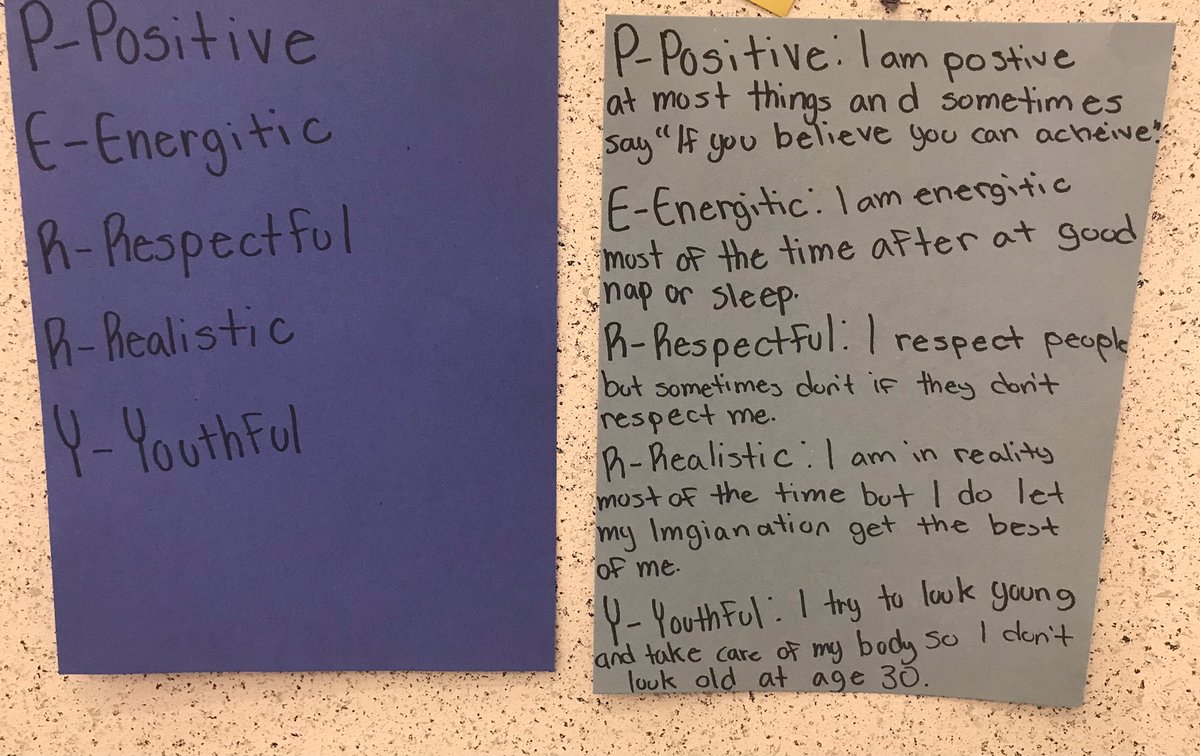 P-Positive
E-Energitic
R-Respectful
R-Realistic
Y-Youthful
P-Positive: I am postive
at most things and sometimes
say "If you believe you can acheive."
E-Energitic: I am energitic
most of the time after at good
nap or sleep.
R-Respectful: I respect people
but sometimes don't if they don't
respect me.
R-Realistic: I am in reality
most of the time but I do let
my Imgianation get the best
of me.
Y-Youthful: I try to look young
and take care of my body so I don't
look old at age 30.